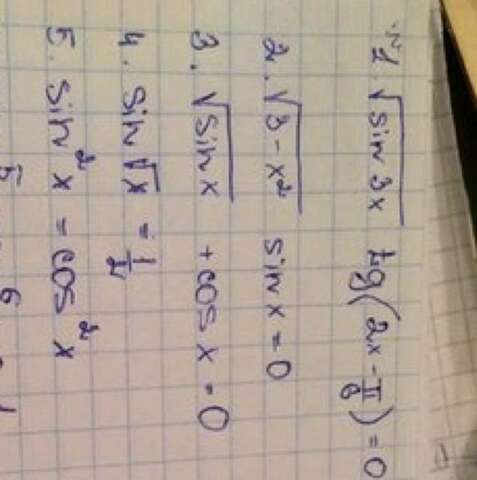 1. √sin 3x tg(2x - π/6) = 0
2. √3 - x² sin x = 0
3. √sin x + cos x = 0
4. sin √x = 1/2
5. sin² x = cos² x